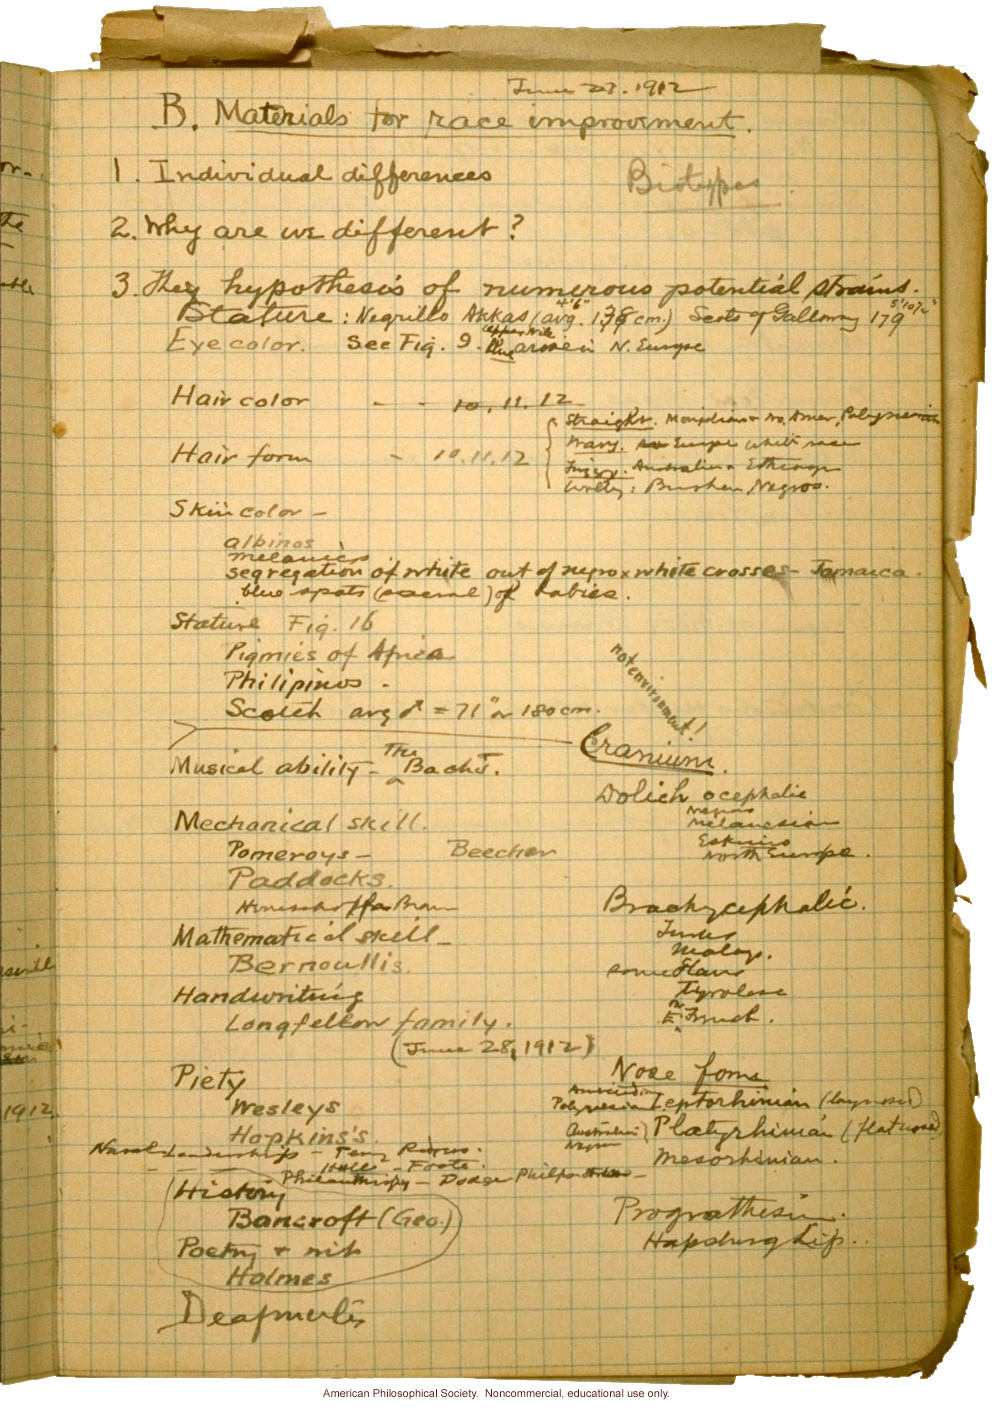 June 27. 1912
B. Materials for race improvement.
1. Individual differences
Biotypes
2. Why are we different?
3. They hypothesis of numerous potential strains.
Stature: Negrillo Akkas (avg. 138 cm.) Scots of Galloway 179
4'6"
5'10½"
Eye color. See Fig. 9. Blue in N. Europe
Upper Nile
Hair color - - 10, 11, 12
Hair form - 10.11.12
Straight. Mongolian & No. Amer, Polynesian
Wavy. Europe white race
Frizzy. Australian &
Wooly: Bushmen, Negros.
Skin color -
albinos
melanics
segregation of white out of negro x white crosses - Jamaica.
blue spots (sacral) of babies.
Stature Fig. 16
Pigmies of Africa
Philipinos -
Scotch avg ♂ = 71" or 180 cm.
not environment!
Musical ability - The Bachs.
Mechanical skill.
Pomeroys - Beecher
Paddocks.
Brown
Mathematical skill -
Bernoullis.
Handwriting
Longfellow family.
(June 28, 1912)
Piety
Wesleys
Hopkins's
Naval Leadership - Perry
Hulls - Foote.
Philanthropy - Dodge Phelps
History
Bancroft (Geo.)
Poetry & wit
Holmes
Deafmutes
Cranium.
Dolichocephalic
Negros
Melanesian
Eskimo
North Europe.
Brachycephalic.
Turks
Malay.
some Slavs
Tyrolese
French.
Nose form
Amerindian
Polynesian Leptorhinian (long nosed)
Australian } Platyrhinian (flat nosed)
Negros
Mesorhinian.
Prognathism.
Hapsburg Lip.
American Philosophical Society. Noncommercial, educational use only.